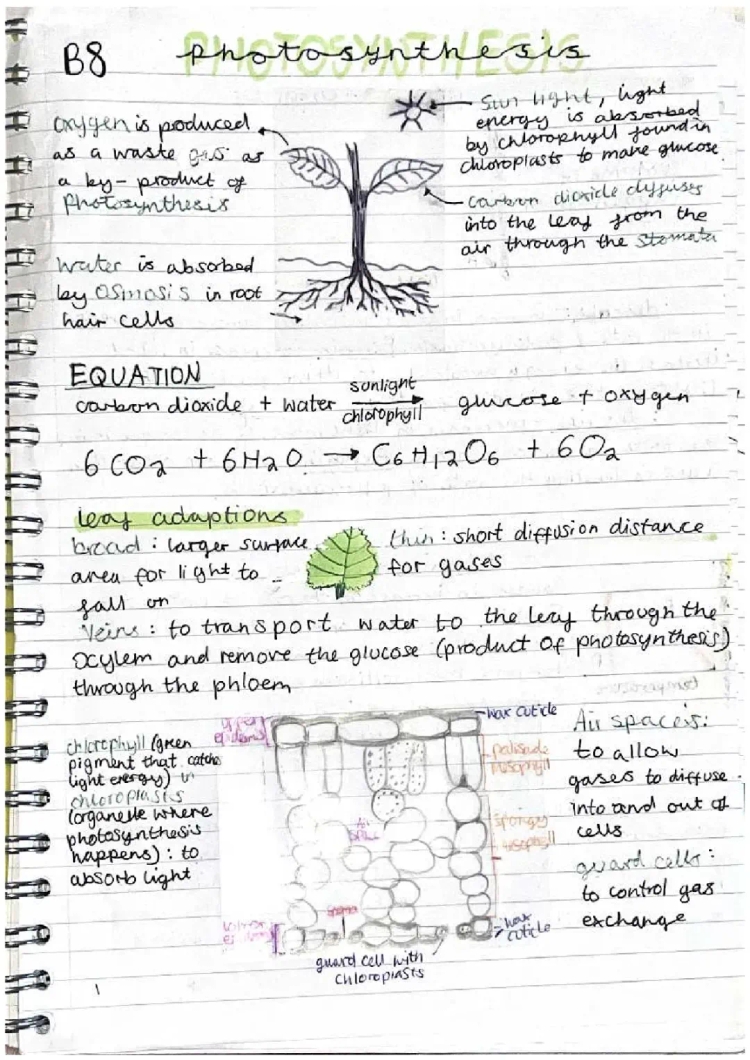 B8 Photosynthesis
PHOTOSYNTHESIS
oxygen is produced
as a waste gas as
a by-product of
Photosynthesis
Sun light, light
energy is absorbed
by chlorophyll found in
chloroplasts to make glucose
carbon dioxide diffuses
into the leaf from the
air through the stomata
water is absorbed
by osmosis in root
hair cells
EQUATION
carbon dioxide + water sunlight → chlorophyll glucose + oxygen
6CO2 + 6H2O → C6H12O6 + 6O2
leaf adaptions
broad : larger surface
area for light to
fall on
thin : short diffusion distance
for gases
Veins : to transport water to the leaf through the
xylem and remove the glucose (product of photosynthesis)
through the phloem
chlorophyll (green
pigment that catches
light energy) in
chloroplasts
(organelle where
photosynthesis
happens) : to
absorb light
upper
epidermis
wax cuticle
palisade
mesophyll
air
space
spongy
mesophyll
stoma
lower
wax
cuticle
guard cell with
chloroplasts
Air spaces:
to allow
gases to diffuse
into and out of
cells
guard cells :
to control gas
exchange
1